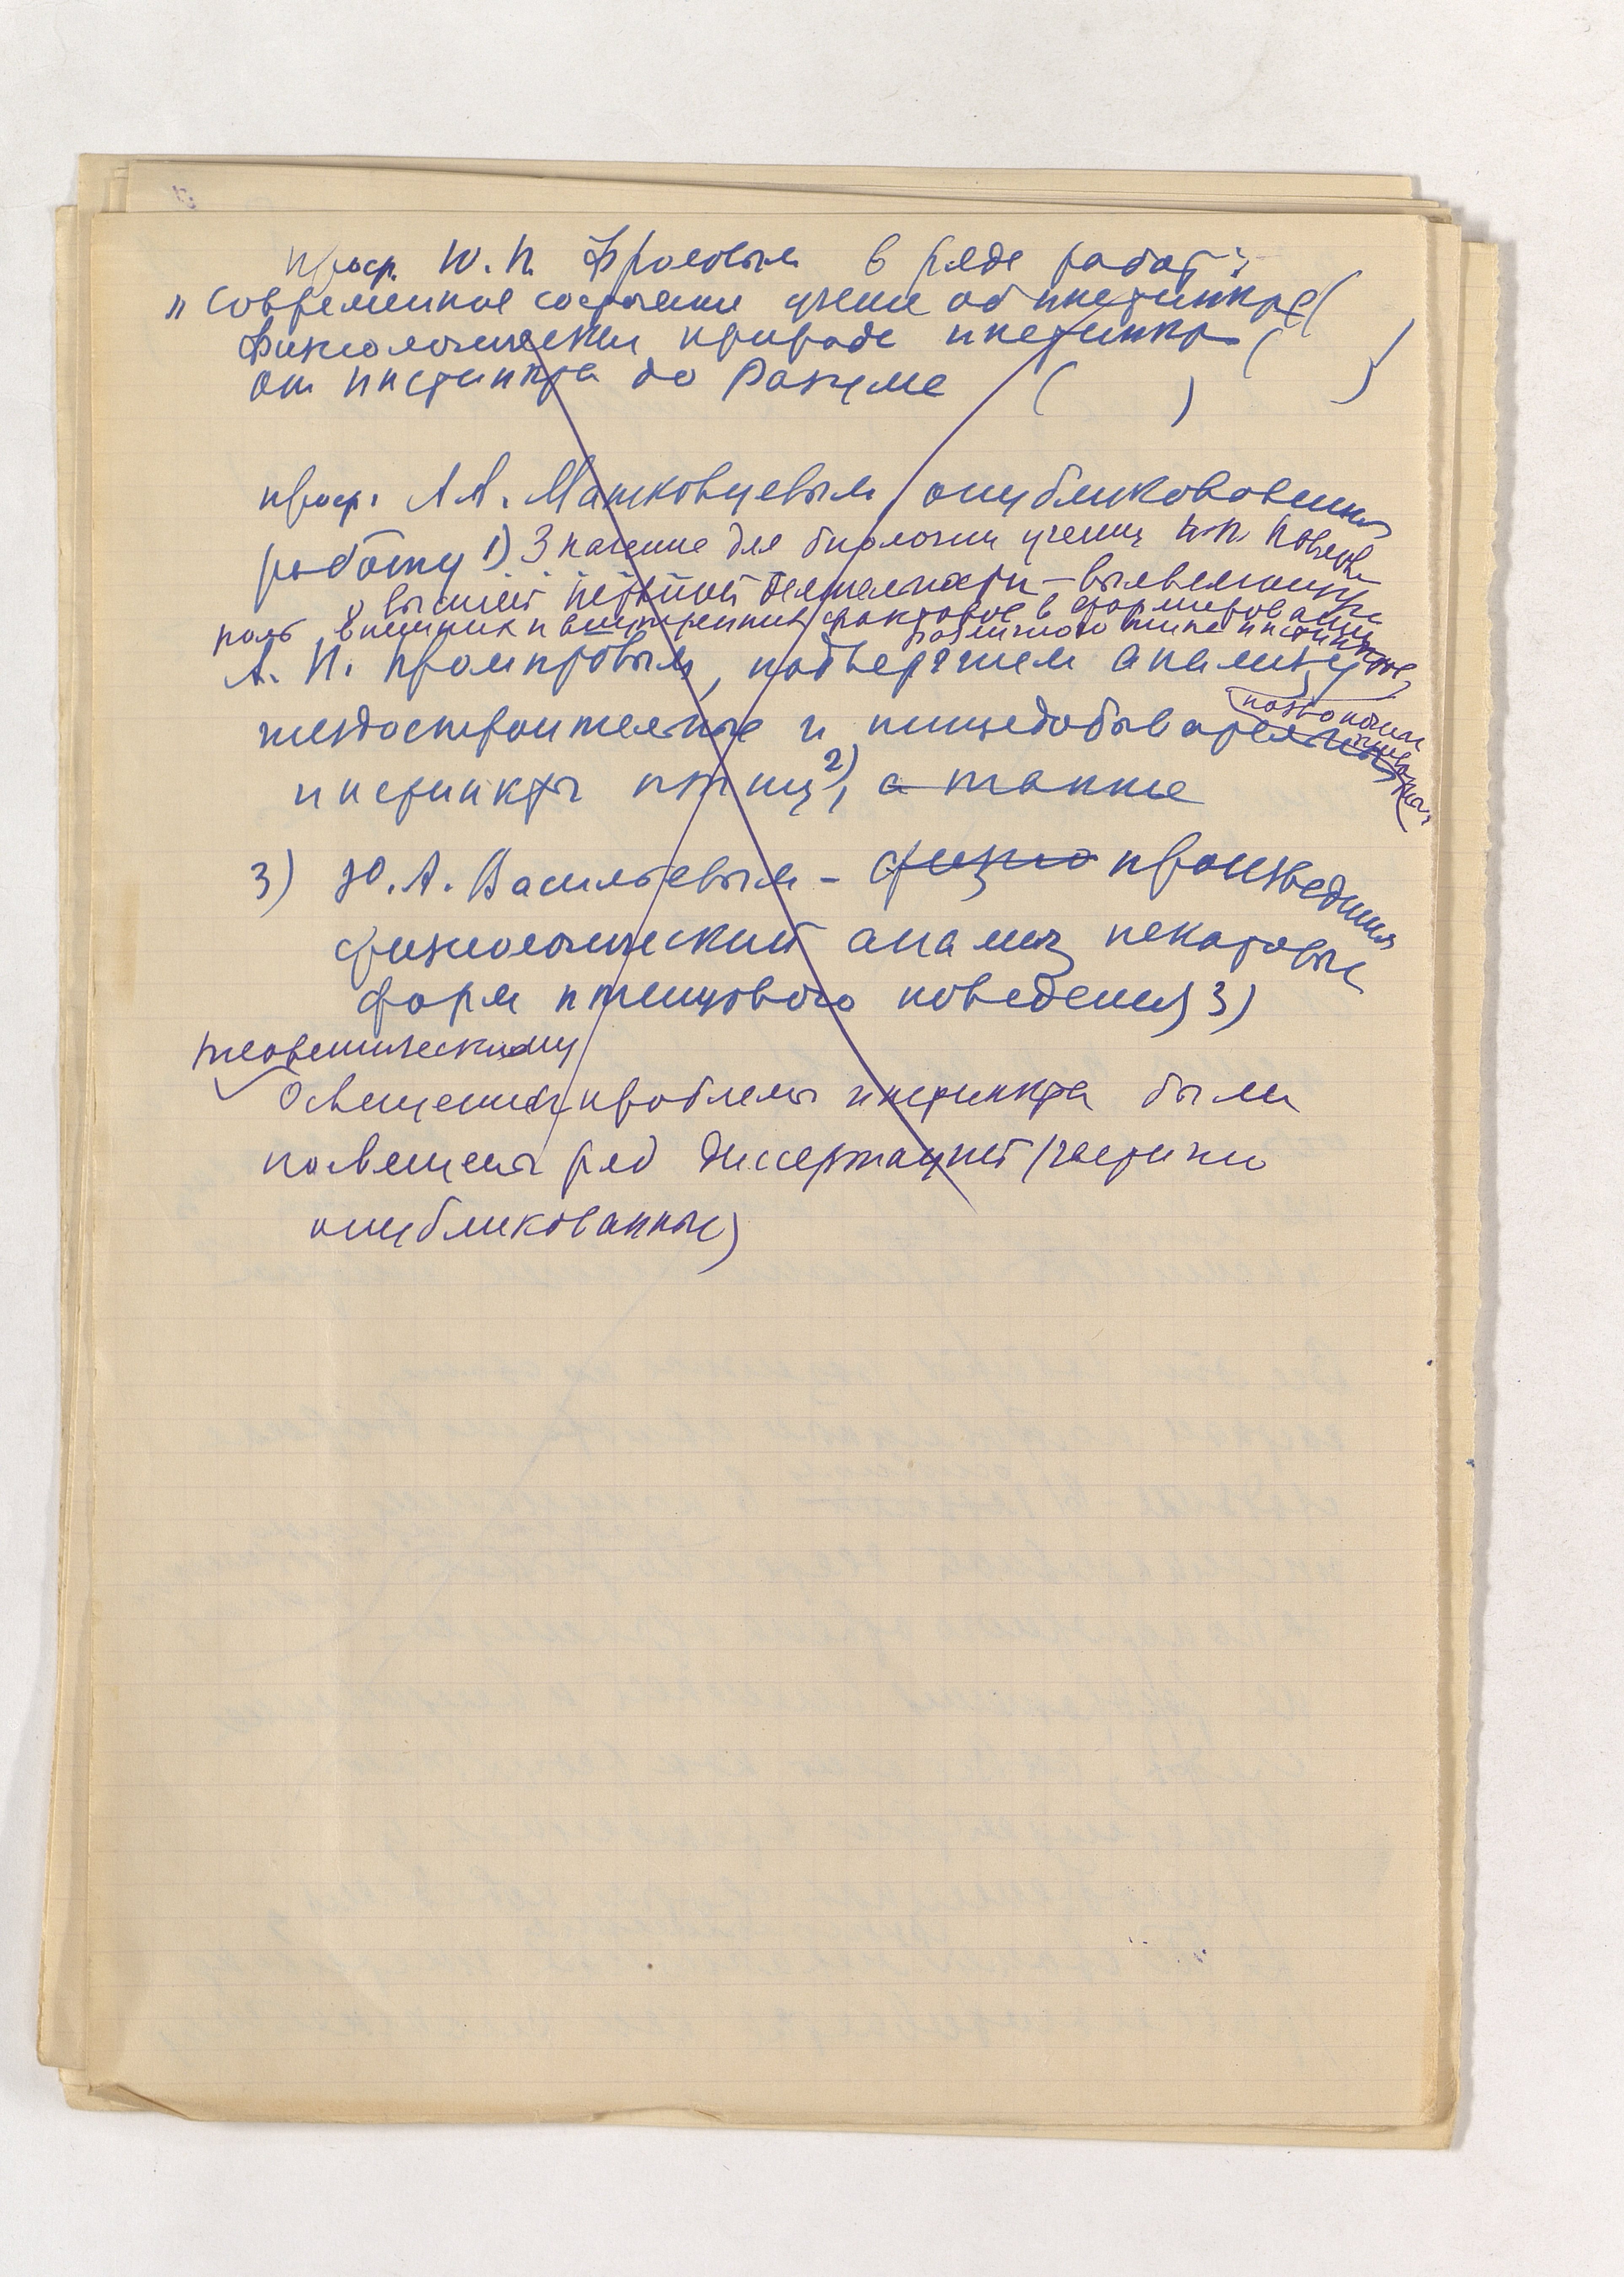 проф. Ю. П. Фроловым в ряде работ:
„Современное состояние учения об инстинкте (
Физиологическая природа инстинкта ( )
От инстинкта до Разума ( )
проф. А. А. Машковцевым, опубликовавшим
работу 1) Значение для биологии учения И. П. Павлова
о высшей нервной деятельности – выявляющую
роль внешних и внутренних факторов в формировании
различного типа инстинктов,
А. Н. Промптовым, подвергшим анализу
гнездостроительные и пищедобывательные
инстинкты птиц 2), а также
3) Ю. А. Васильевым – физио произведшим
физиологический анализ некоторых
форм птенцового поведения 3)
теоретическому
Освещению проблемы инстинкта были
посвящены ряд диссертаций (частично
опубликованных)